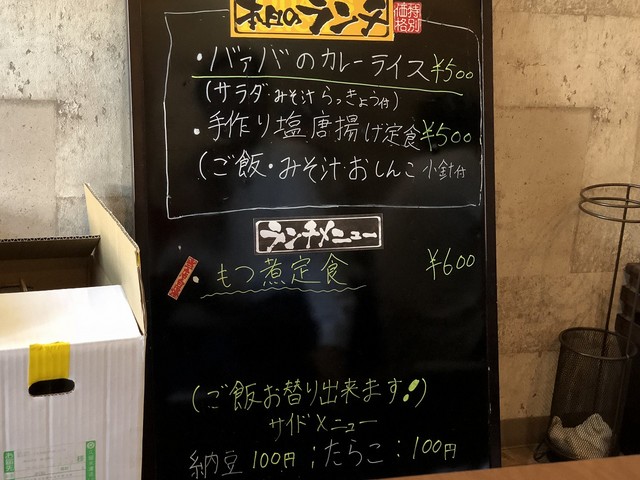 本日のランチ
特別価格
・バァバのカレーライス ¥500
(サラダ・みそ汁 らっきょう付)
・手作り塩唐揚げ定食 ¥500
(ご飯・みそ汁 おしんこ 小鉢付
ランチメニュー
・もつ煮定食 ¥600
(ご飯お替り出来ます!)
サイドメニュー
納豆 100円 ; たらこ : 100円